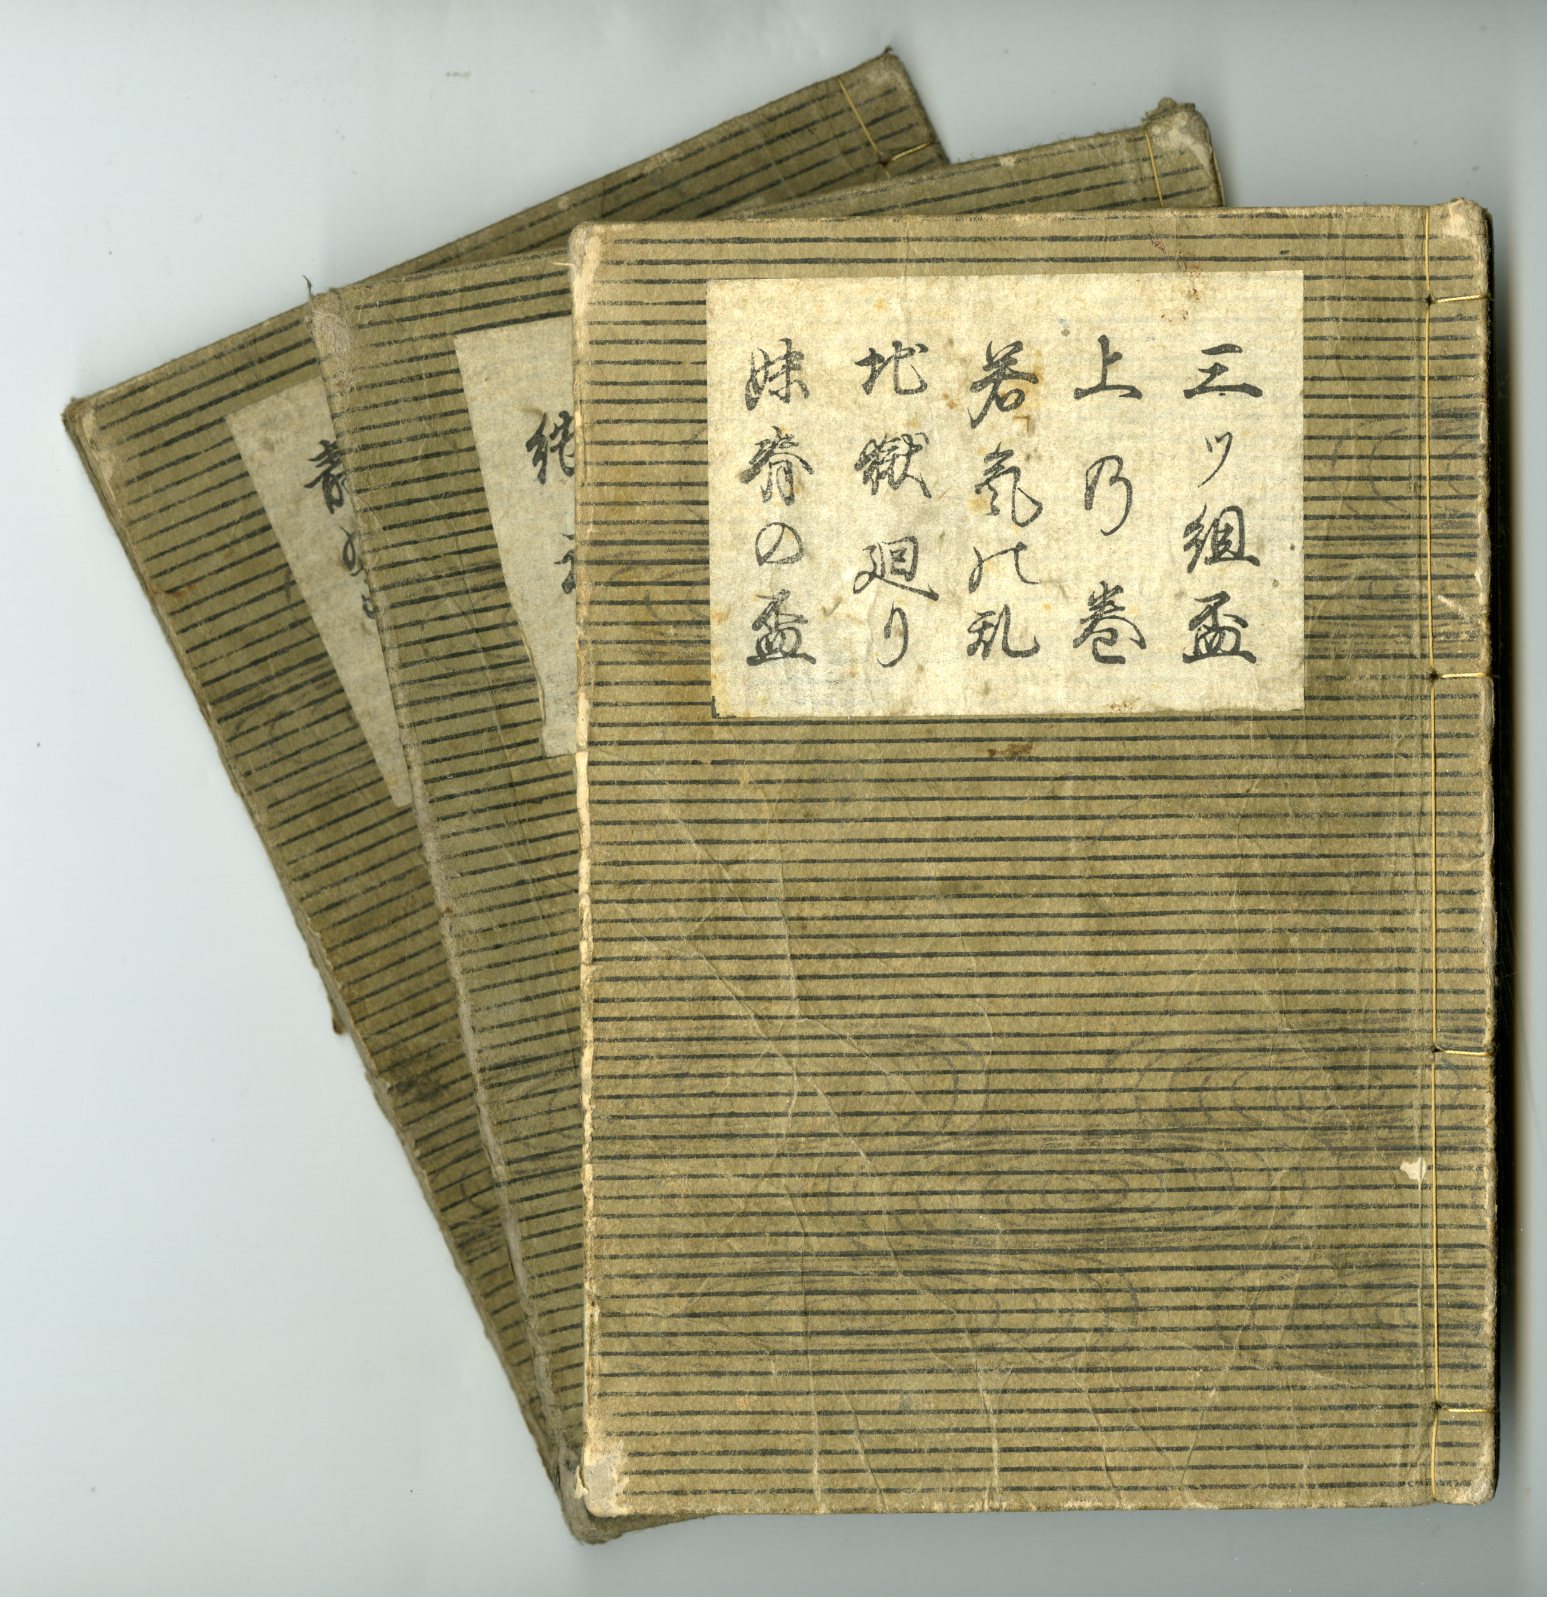 三ッ組盃
上乃巻
若気の乱
地獄廻り
妹脊の盃
継